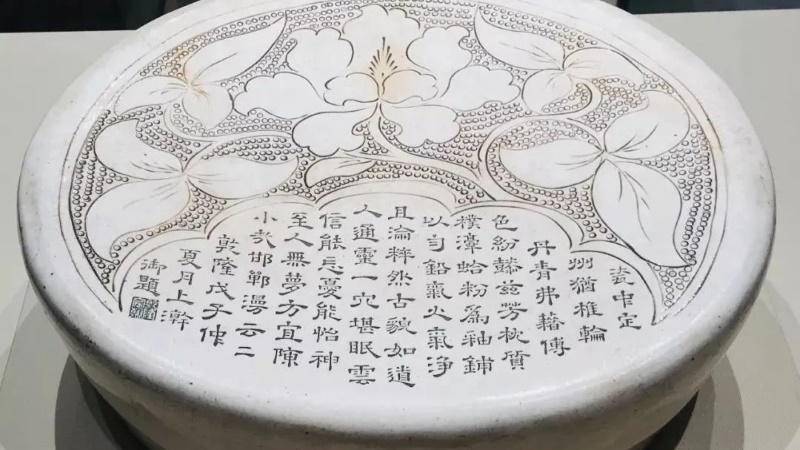 瓷中定
州猶椎輪
丹青弗藉傅
色紛懿茲芳枕質
樸淳蛤粉為釉鋪
以勻鉛氣火氣淨
且淪粹然古貌如道
人通靈一穴堪眠雲
信能忘憂能怡神
至人無夢方宜陳
小哉邯鄲漫云〻
乾隆戊子仲
夏月上澣
御題